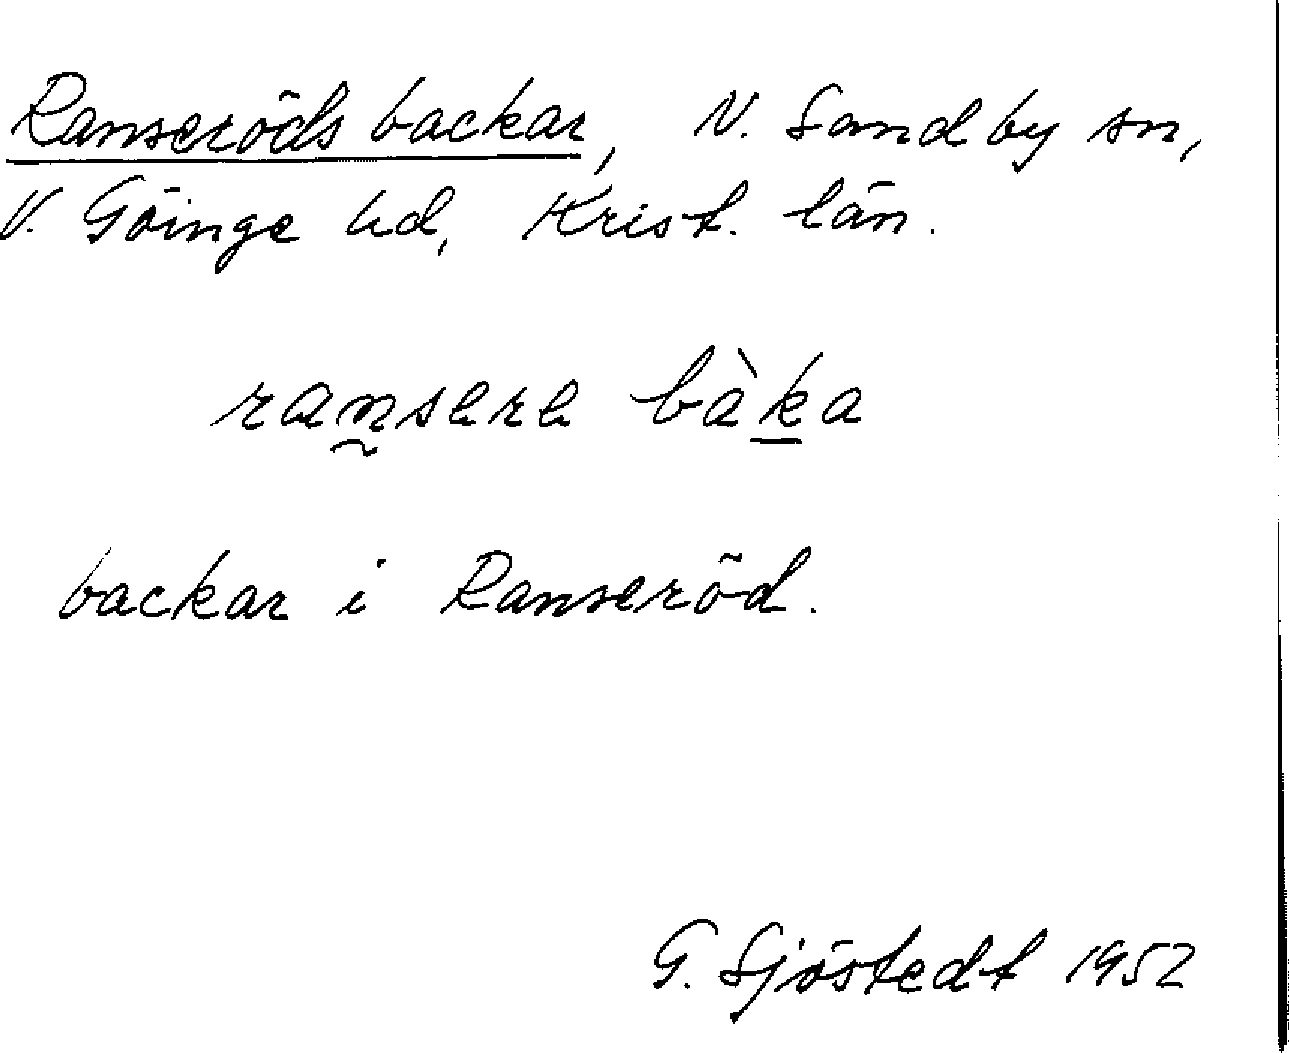 Ranseröds backar, N. Sandby sn,
V. Göinge hd, Krist. län.
ransere bàka
backar i Ranseröd.
G. Sjöstedt 1952